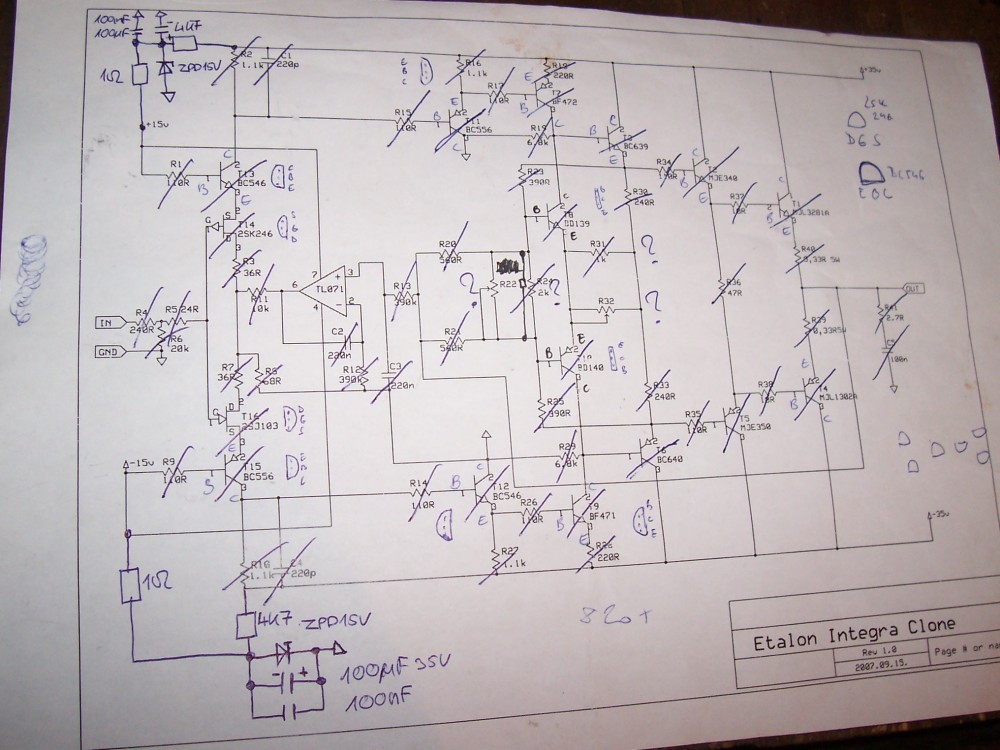 100nF
100µF
4K7
1Ω
ZPD15V
+15v
R2
1.1k
C1
220p
R16
1.1k
R17
110R
R19
220R
T7
BF472
+35v
2SK
246
DGS
R15
110R
T11
BC556
R19
6.8k
T3
BC639
R1
110R
T13
BC546
R23
390R
R34
110R
MJE340
BC546
T14
2SK246
T8
BD139
R30
240R
R37
10R
T1
MJL3281A
R3
36R
R20
560R
R31
1k
?
R40
0,33R 5W
7
3
6
TL071
4
2
R11
10k
R13
390k
?
R22
R24
2k
?
R32
?
R36
47R
OUT
IN
R4
240R
R5
24R
R6
20k
GND
C2
220n
R21
560R
R39
0,33R5W
R41
2.7R
C5
100n
R7
36R
R8
68R
R12
390k
C3
220n
BD140
R33
240R
R38
10R
T4
MJL1302A
T16
2SJ103
R25
390R
R35
110R
T5
MJE350
-15v
R9
110R
T15
BC556
R29
6.8k
T6
BC640
R14
110R
T12
BC546
R26
110R
T9
BF471
-35v
R27
1.1k
R26
220R
1Ω
R10
1.1k
C4
220p
4K7
ZPD15V
100µF 35V
100nF
Etalon Integra Clone
Rev 1.0
2007.09.15.
Page # or